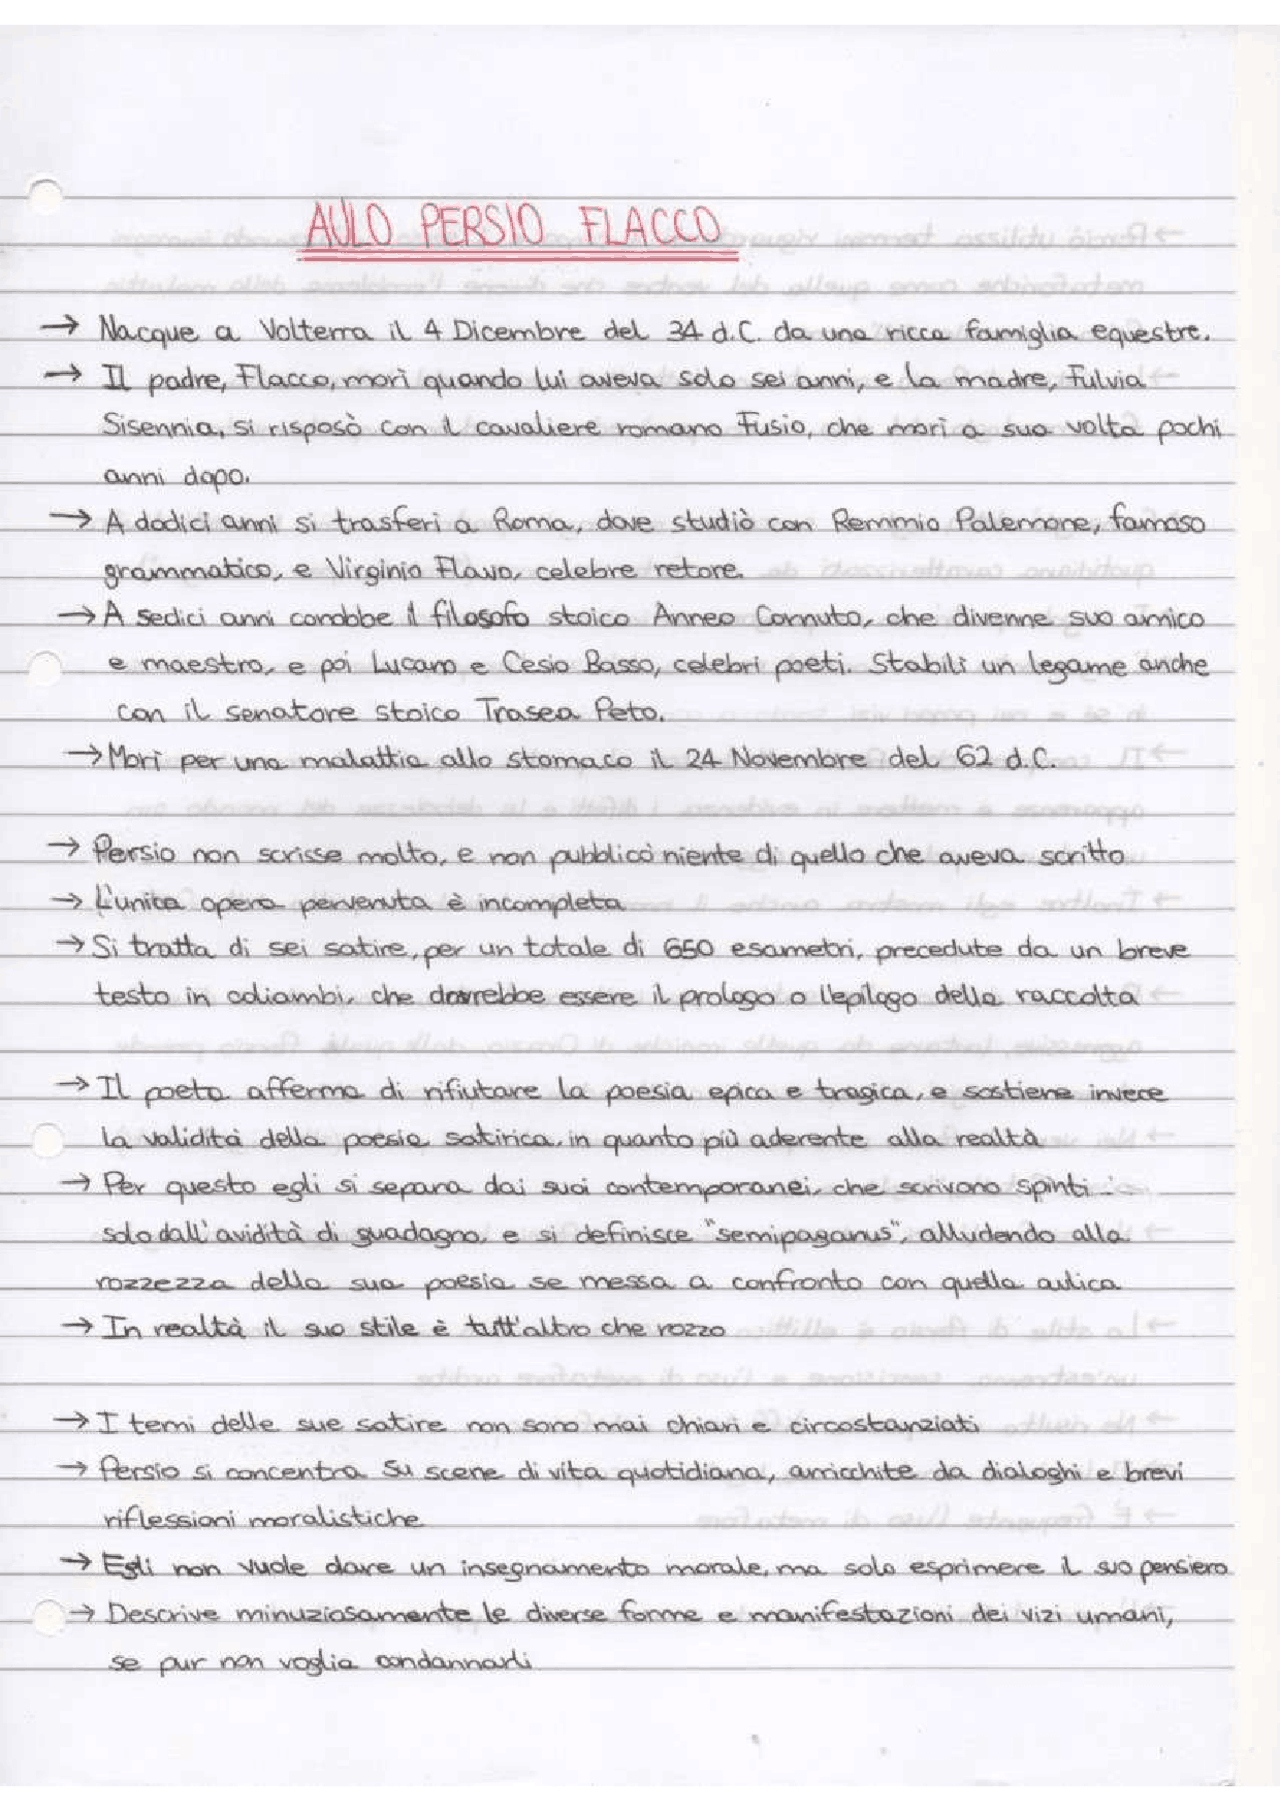 AULO PERSIO FLACCO
→ Nacque a Volterra il 4 Dicembre del 34 d.C. da una ricca famiglia equestre.
→ Il padre, Flacco, morì quando lui aveva solo sei anni, e la madre, Fulvia
Sisennia, si risposò con il cavaliere romano Fusio, che morì a sua volta pochi
anni dopo.
→ A dodici anni si trasferì a Roma, dove studiò con Remmio Palemone, famoso
grammatico, e Virginio Flavo, celebre retore.
→ A sedici anni conobbe il filosofo stoico Anneo Cornuto, che divenne suo amico
e maestro, e poi Lucano e Cesio Basso, celebri poeti. Stabilì un legame anche
con il senatore stoico Trasea Peto.
→ Morì per una malattia allo stomaco il 24 Novembre del 62 d.C.
→ Persio non scrisse molto, e non pubblicò niente di quello che aveva scritto
→ L'unica opera pervenuta è incompleta
→ Si tratta di sei satire, per un totale di 650 esametri, precedute da un breve
testo in coliambi, che dovrebbe essere il prologo o l'epilogo della raccolta
→ Il poeta afferma di rifiutare la poesia epica e tragica, e sostiene invece
la validità della poesia satirica, in quanto più aderente alla realtà
→ Per questo egli si separa dai suoi contemporanei, che scrivono spinti
solo dall'avidità di guadagno, e si definisce "semipaganus", alludendo alla
rozzezza della sua poesia se messa a confronto con quella aulica
→ In realtà il suo stile è tutt'altro che rozzo
→ I temi delle sue satire non sono mai chiari e circostanziati
→ Persio si concentra su scene di vita quotidiana, arricchite da dialoghi e brevi
riflessioni moralistiche
→ Egli non vuole dare un insegnamento morale, ma solo esprimere il suo pensiero
→ Descrive minuziosamente le diverse forme e manifestazioni dei vizi umani,
se pur non voglia condannarli